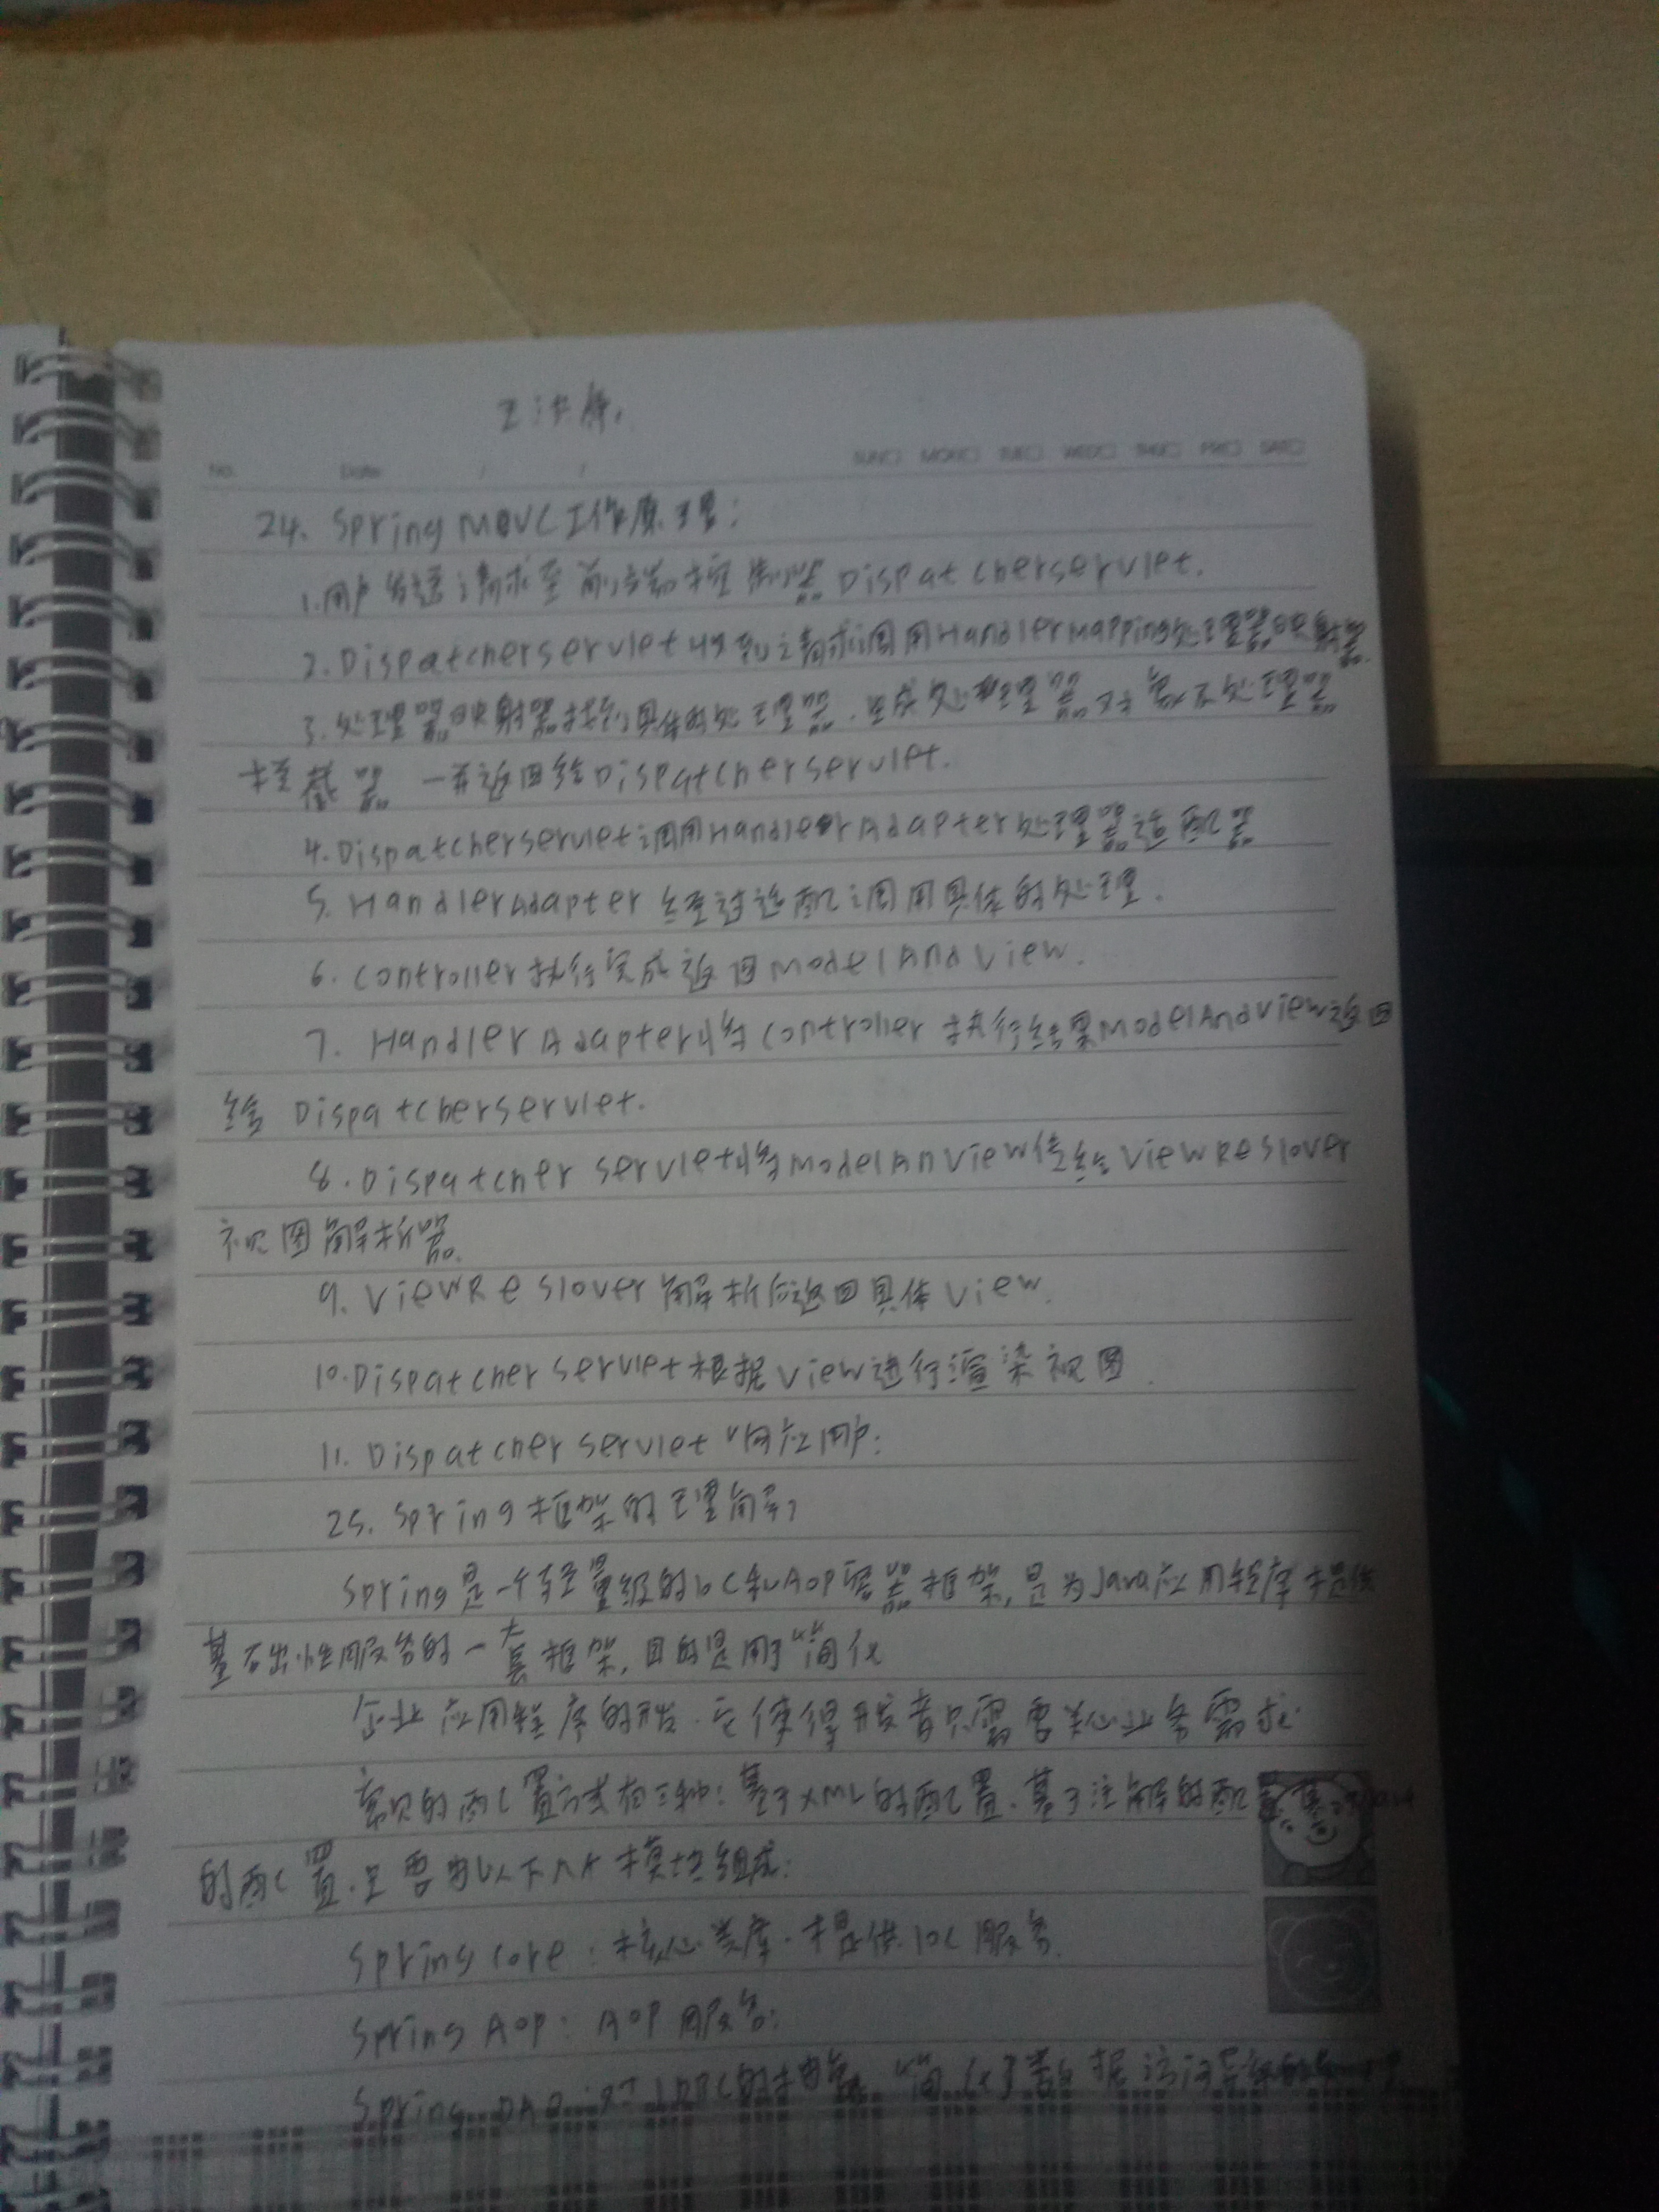 No. Date / / SUN□ MON□ TUE□ WED□ THU□ FRI□ SAT□
24. Spring MVC工作原理:
1.用户发送请求至前端控制器Dispatcherservlet.
2.Dispatcherservlet收到请求调用HandlerMapping处理器映射器.
3.处理器映射器找到具体的处理器.生成处理器对象及处理器
拦截器 一并返回给Dispatcherservlet.
4.Dispatcherservlet调用HandlerAdapter处理器适配器
5.HandlerAdapter 经过适配调用具体的处理.
6.controller执行完成返回ModelAndView.
7. HandlerAdapter将controller 执行结果ModelAndView返回
给 Dispatcherservlet.
8.Dispatcher servlet将ModelAnView传给ViewReslover
视图解析器
9. ViewReslover解析后返回具体View.
10.Dispatcher servlet根据view进行渲染视图.
11. Dispatcher servlet 响应用户.
25. Spring框架的理解
Spring是一个轻量级的IOC和AOP容器框架,是为Java应用程序提供
基础性服务的一套框架,目的是用于简化
企业应用程序的开发.它使得开发者只需要关心业务需求.
常见的配置方式有三种:基于XML的配置.基于注解的配置
的配置.主要由以下几个模块组成:
spring core:核心类库.提供IOC服务.
Spring AOP:AOP服务:
Spring DAO:对JDBC的 简化了数据访问异常的